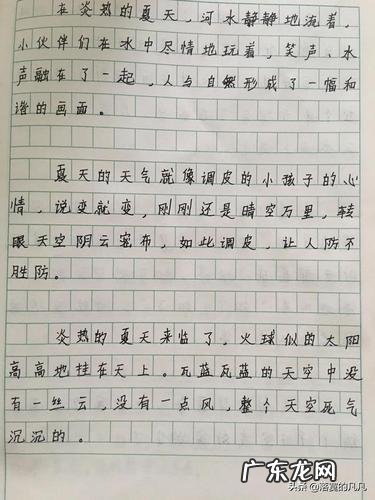 在炎热的夏天，河水静静地流着，
小伙伴们在水中尽情地玩着，笑声、水
声融在了一起，人与自然形成了一幅和
谐的画面。
夏天的天气就像调皮的小孩子的心
情，说变就变，刚刚还是晴空万里，转
眼天空阴云密布，如此调皮，让人防不
胜防。
炎热的夏天来临了，火球似的太阳
高高地挂在天上。瓦蓝瓦蓝的天空中没
有一丝云，没有一点风，整个天空死气
沉沉的。
广东龙网
头条@落寞的凡凡